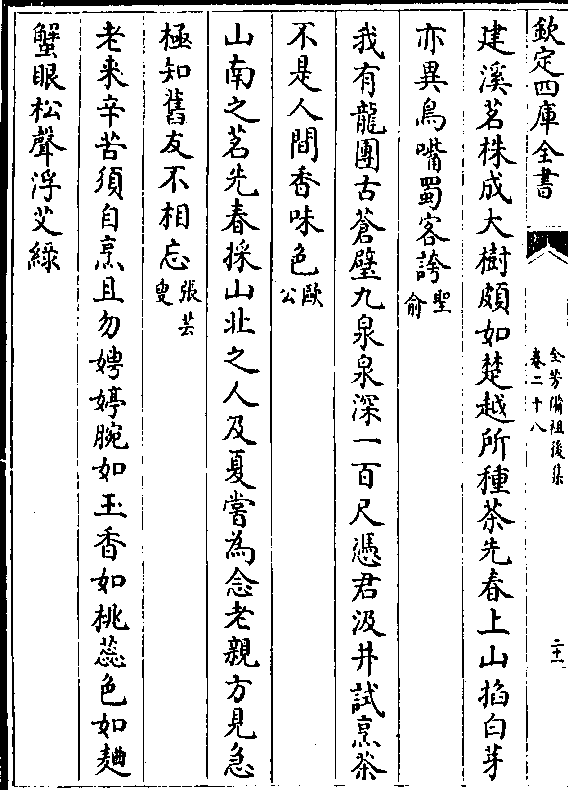 欽定四庫全書
全芳備祖後集
卷二十八
二十一
建溪茗株成大樹頗如楚越所種茶先春上山掐白芽
亦異鳥嘴蜀客誇聖俞
我有龍團古蒼璧九泉泉深一百尺憑君汲井試烹茶
不是人間香味色歐公
山南之茗先春採山北之人及夏嘗為念老親方見急
極知舊友不相忘張芸叟
老来辛苦須自烹且勿娉婷腕如玉香如桃蕊色如麯
蟹眼松聲浮艾緑